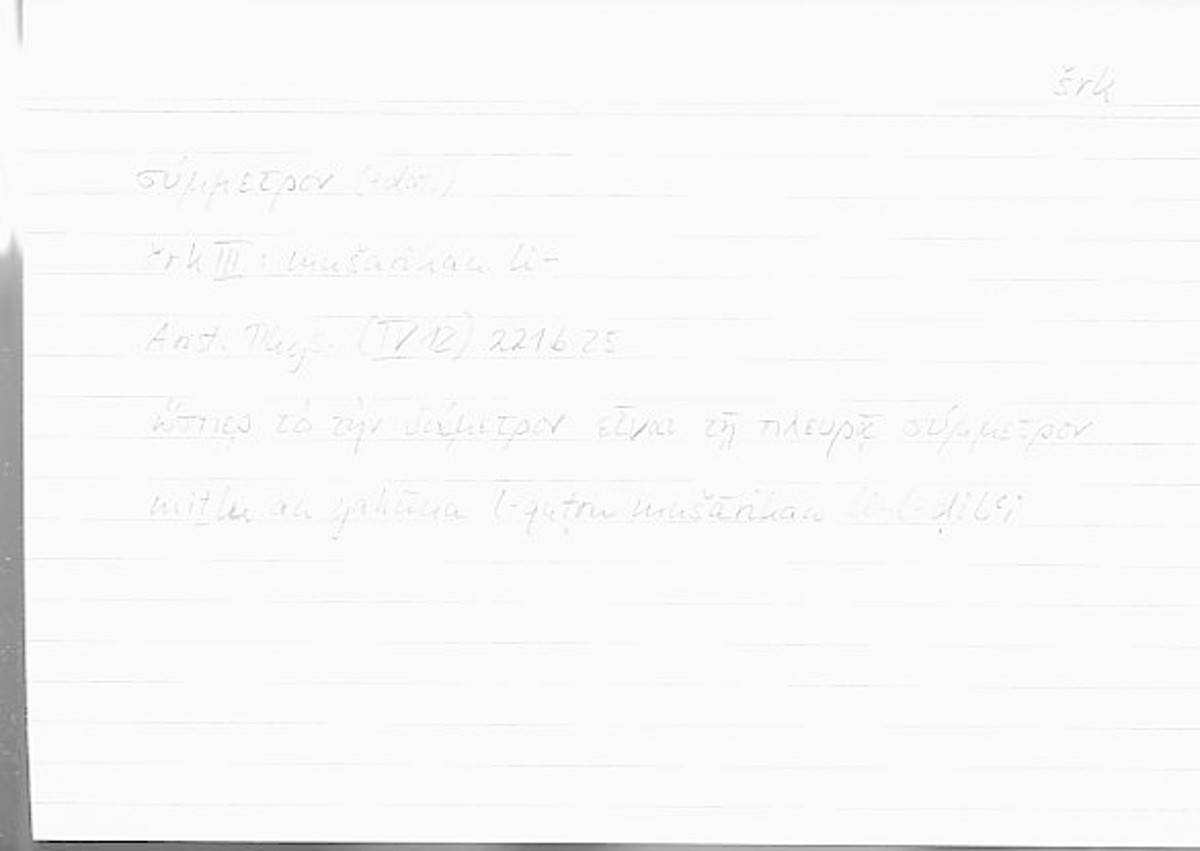 šrk
σύμμετρον (+dat.)
šrk III : mušārikan li-
Arist. Phys. (IV 12) 221b25
ὥσπερ τὸ τὴν διάμετρον εἶναι τῇ πλευρᾷ σύμμετρον
miṯlu an yakūna l-quṭru mušārikan li-l-ḍilʿi